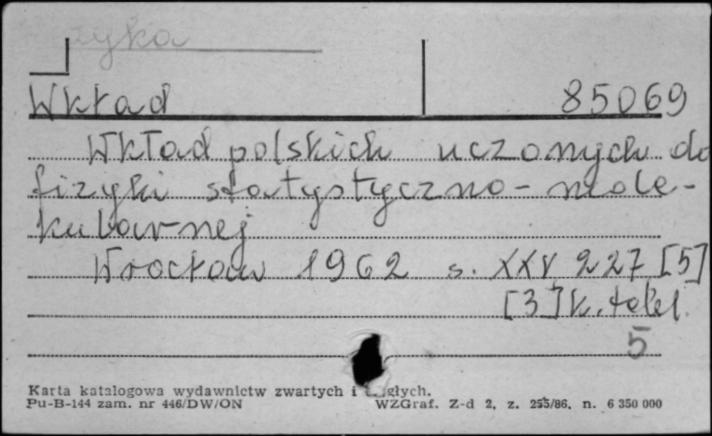 Wkład 85069
Wkład polskich uczonych do
fizyki statystyczno-mole-
kularnej
Wrocław 1962 s. XXV 227 [5]
[3] k. tabl.
5
Karta katalogowa wydawnictw zwartych i ciągłych.
Pu-B-144 zam. nr 446/DW/ON WZGraf. Z-d 2, z. 255/86, n. 6 350 000